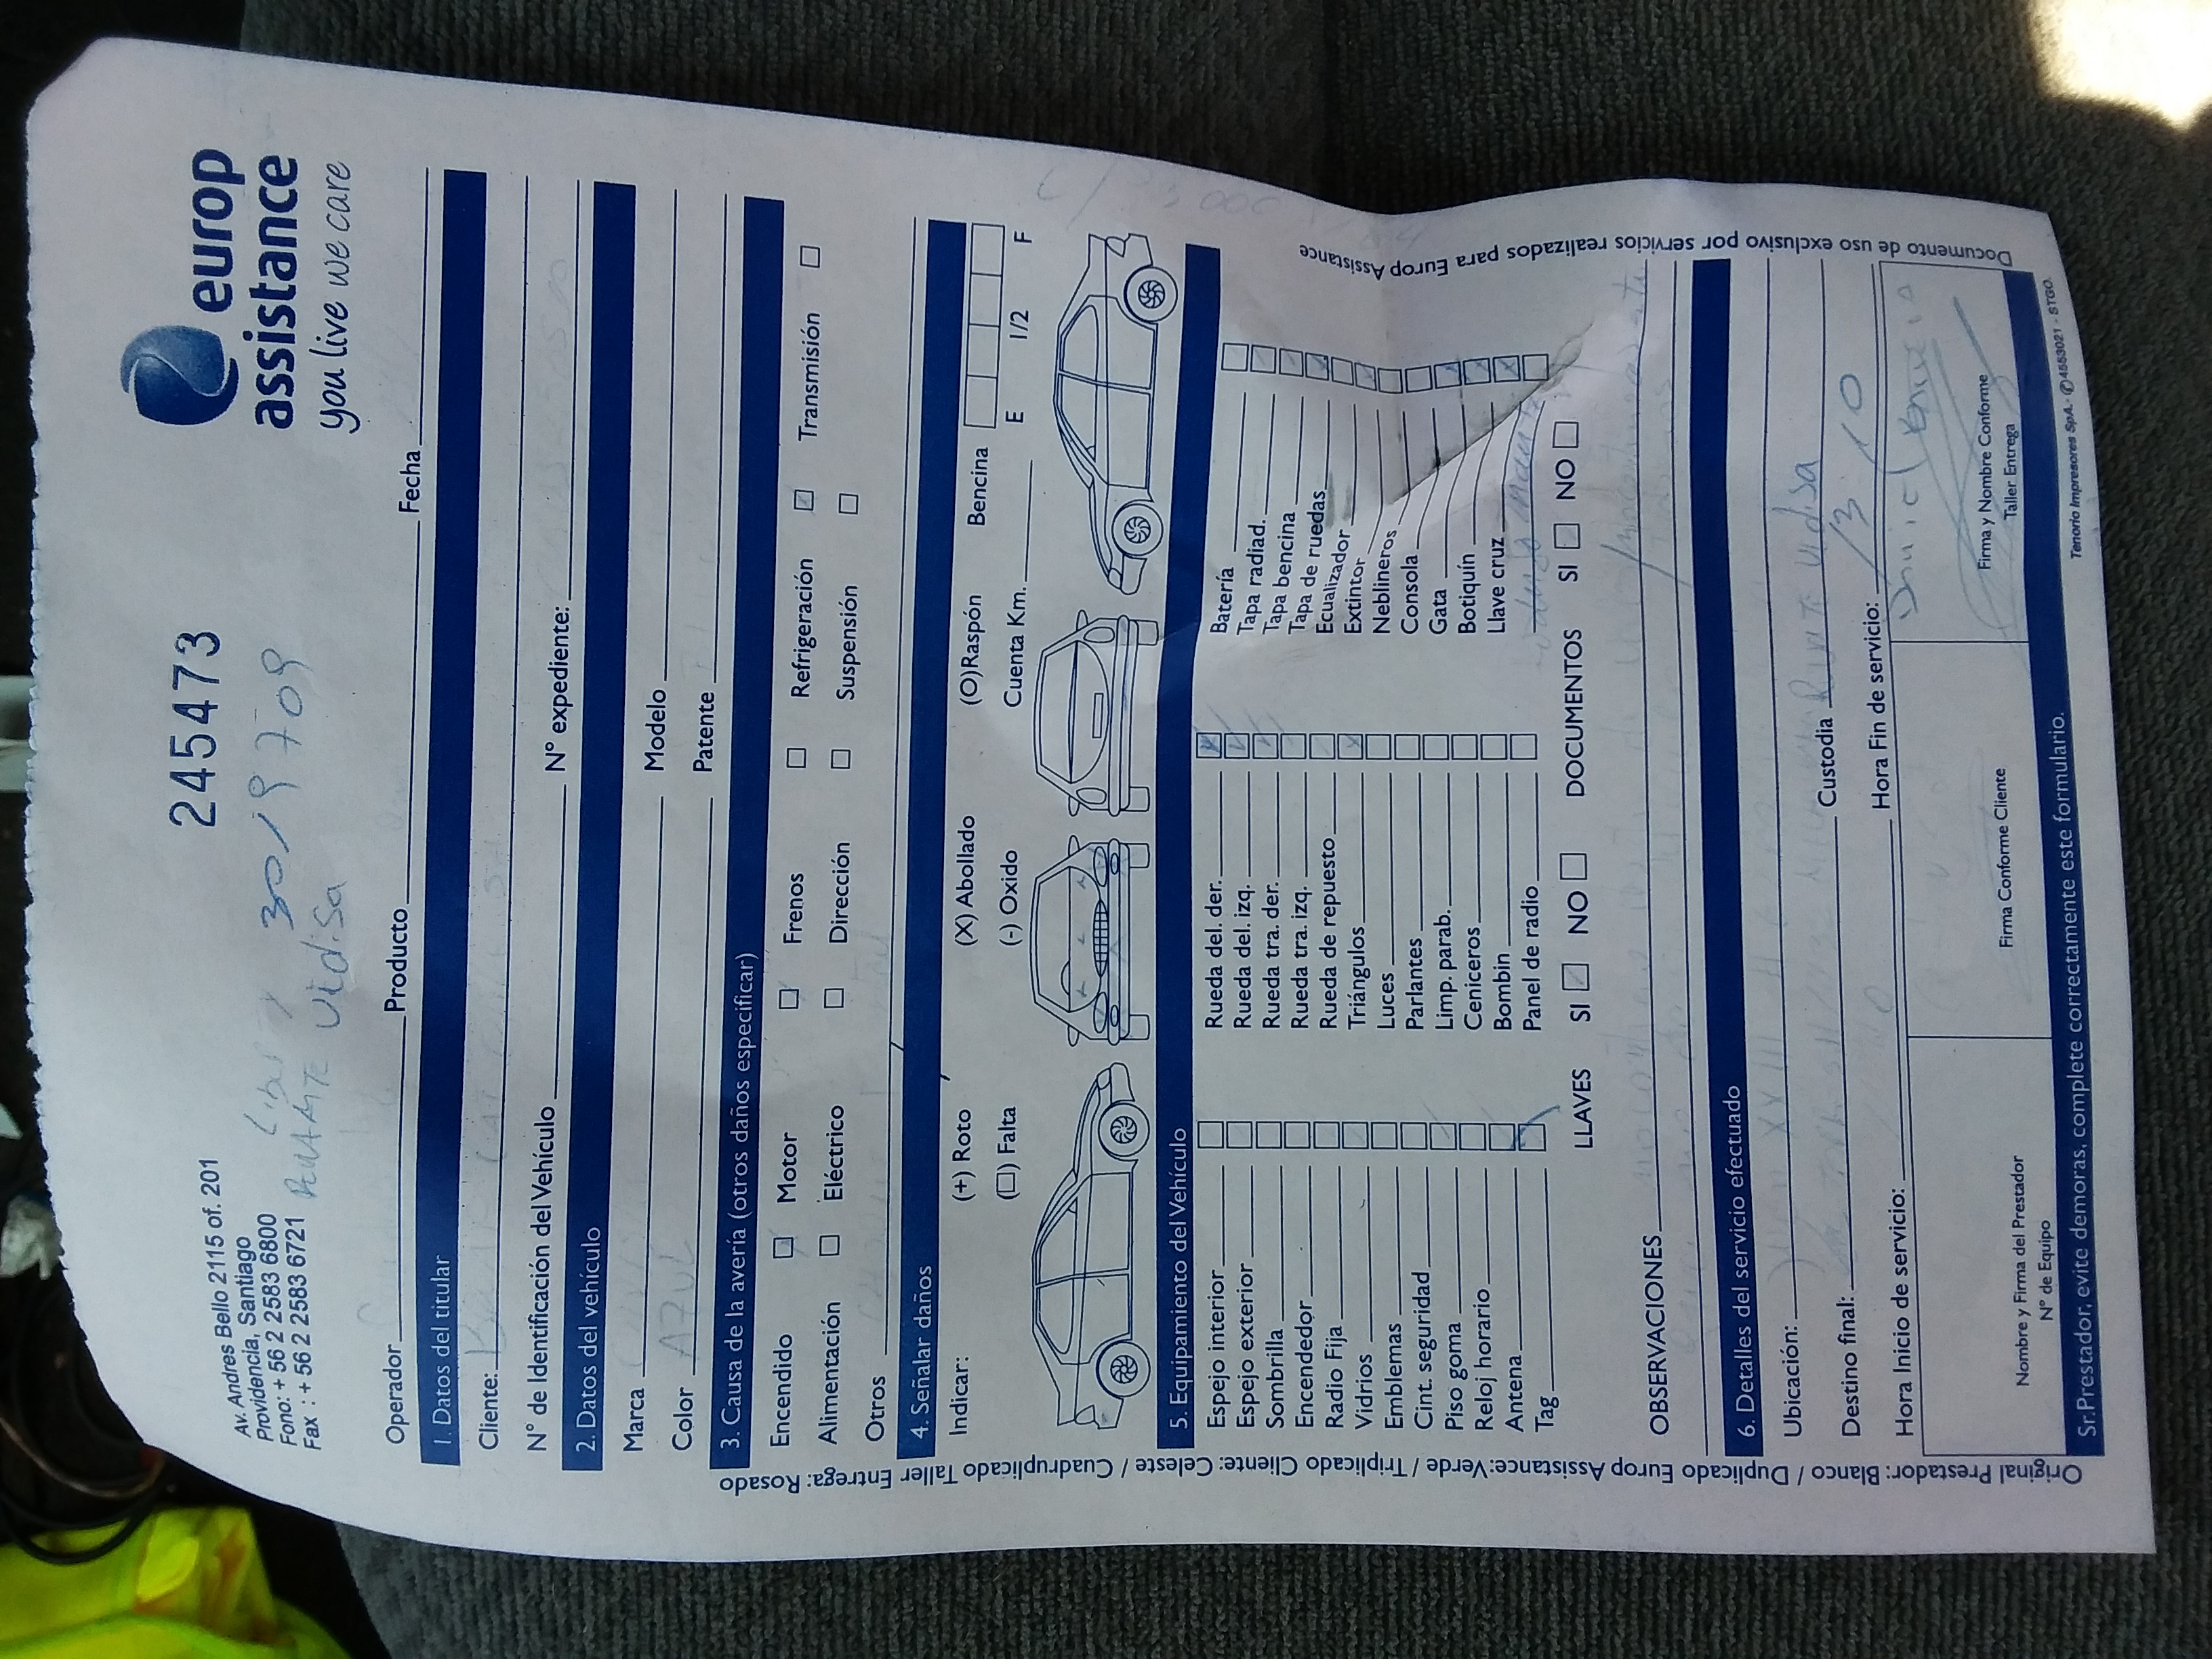 245473
europ
assistance
you live we care
Av. Andres Bello 2115 of. 201
Providencia, Santiago
Fono: + 56 2 2583 6800
Fax : + 56 2 2583 6721
3019709
Vidisa
Operador Producto Fecha
1. Datos del titular
Cliente:
N° de Identificación del Vehículo N° expediente:
2. Datos del vehículo
Marca Modelo
Color AZUL Patente
3. Causa de la avería (otros daños especificar)
Encendido Motor Frenos Refrigeración Transmisión
Alimentación Eléctrico Dirección Suspensión
Otros
4. Señalar daños
Indicar: (+) Roto (X) Abollado (O)Raspón Bencina
(□) Falta (-) Oxido Cuenta Km. E 1/2 F
5. Equipamiento del Vehículo
Espejo interior Rueda del. der. Batería
Espejo exterior Rueda del. izq. Tapa radiad.
Sombrilla Rueda tra. der. Tapa bencina
Encendedor Rueda tra. izq. Tapa de ruedas
Radio Fija Rueda de repuesto Ecualizador
Vidrios Triángulos Extintor
Emblemas Luces Neblineros
Cint. seguridad Parlantes Consola
Piso goma Limp. parab. Gata
Reloj horario Ceniceros Botiquín
Antena Bombin Llave cruz
Tag Panel de radio
LLAVES SI NO DOCUMENTOS SI NO
OBSERVACIONES
6. Detalles del servicio efectuado
Ubicación:
Destino final: Custodia Vidisa
Hora Inicio de servicio: Hora Fin de servicio: 13 10
Nombre y Firma del Prestador
N° de Equipo
Firma Conforme Cliente
Firma y Nombre Conforme
Taller Entrega
Sr. Prestador, evite demoras, complete correctamente este formulario.
Tenorio Impresores SpA. - ✆4553021 - STGO.
Original Prestador: Blanco / Duplicado Europ Assistance: Verde / Triplicado Cliente: Celeste / Cuadruplicado Taller Entrega: Rosado
Documento de uso exclusivo por servicios realizados para Europ Assistance